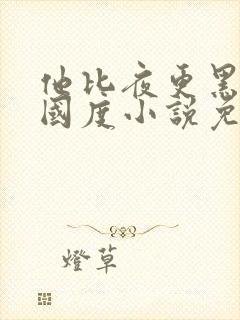 他比夜更黑
國度小說免
燈草